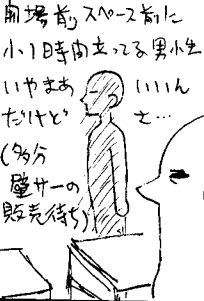 開場前スペース前に
小1時間立ってる男性
いやまあ いいん
だけど さ…
(多分
壁サーの
販売待ち)